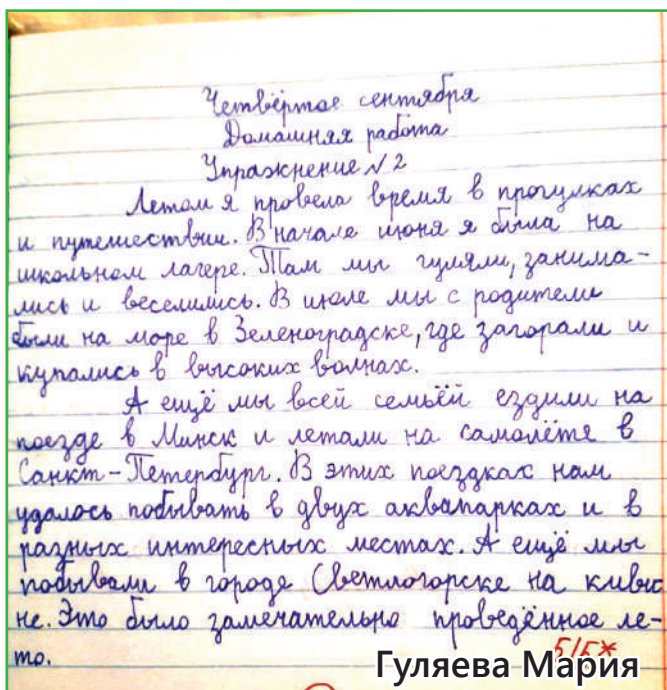 Четвёртое сентября
Домашняя работа
Упражнение №2
Летом я провела время в прогулках
и путешествии. В начале июня я была на
школьном лагере. Там мы гуляли, занима-
лись и веселились. В июле мы с родители
были на море в Зеленоградске, где загорали и
купались в высоких волнах.
А ещё мы всей семьёй ездили на
поезде в Минск и летали на самолёте в
Санкт-Петербург. В этих поездках нам
удалось побывать в двух аквапарках и в
разных интересных местах. А ещё мы
побывали в городе Светлогорске на
не. Это было замечательно проведённое ле-
то.
5/5*
Гуляева Мария